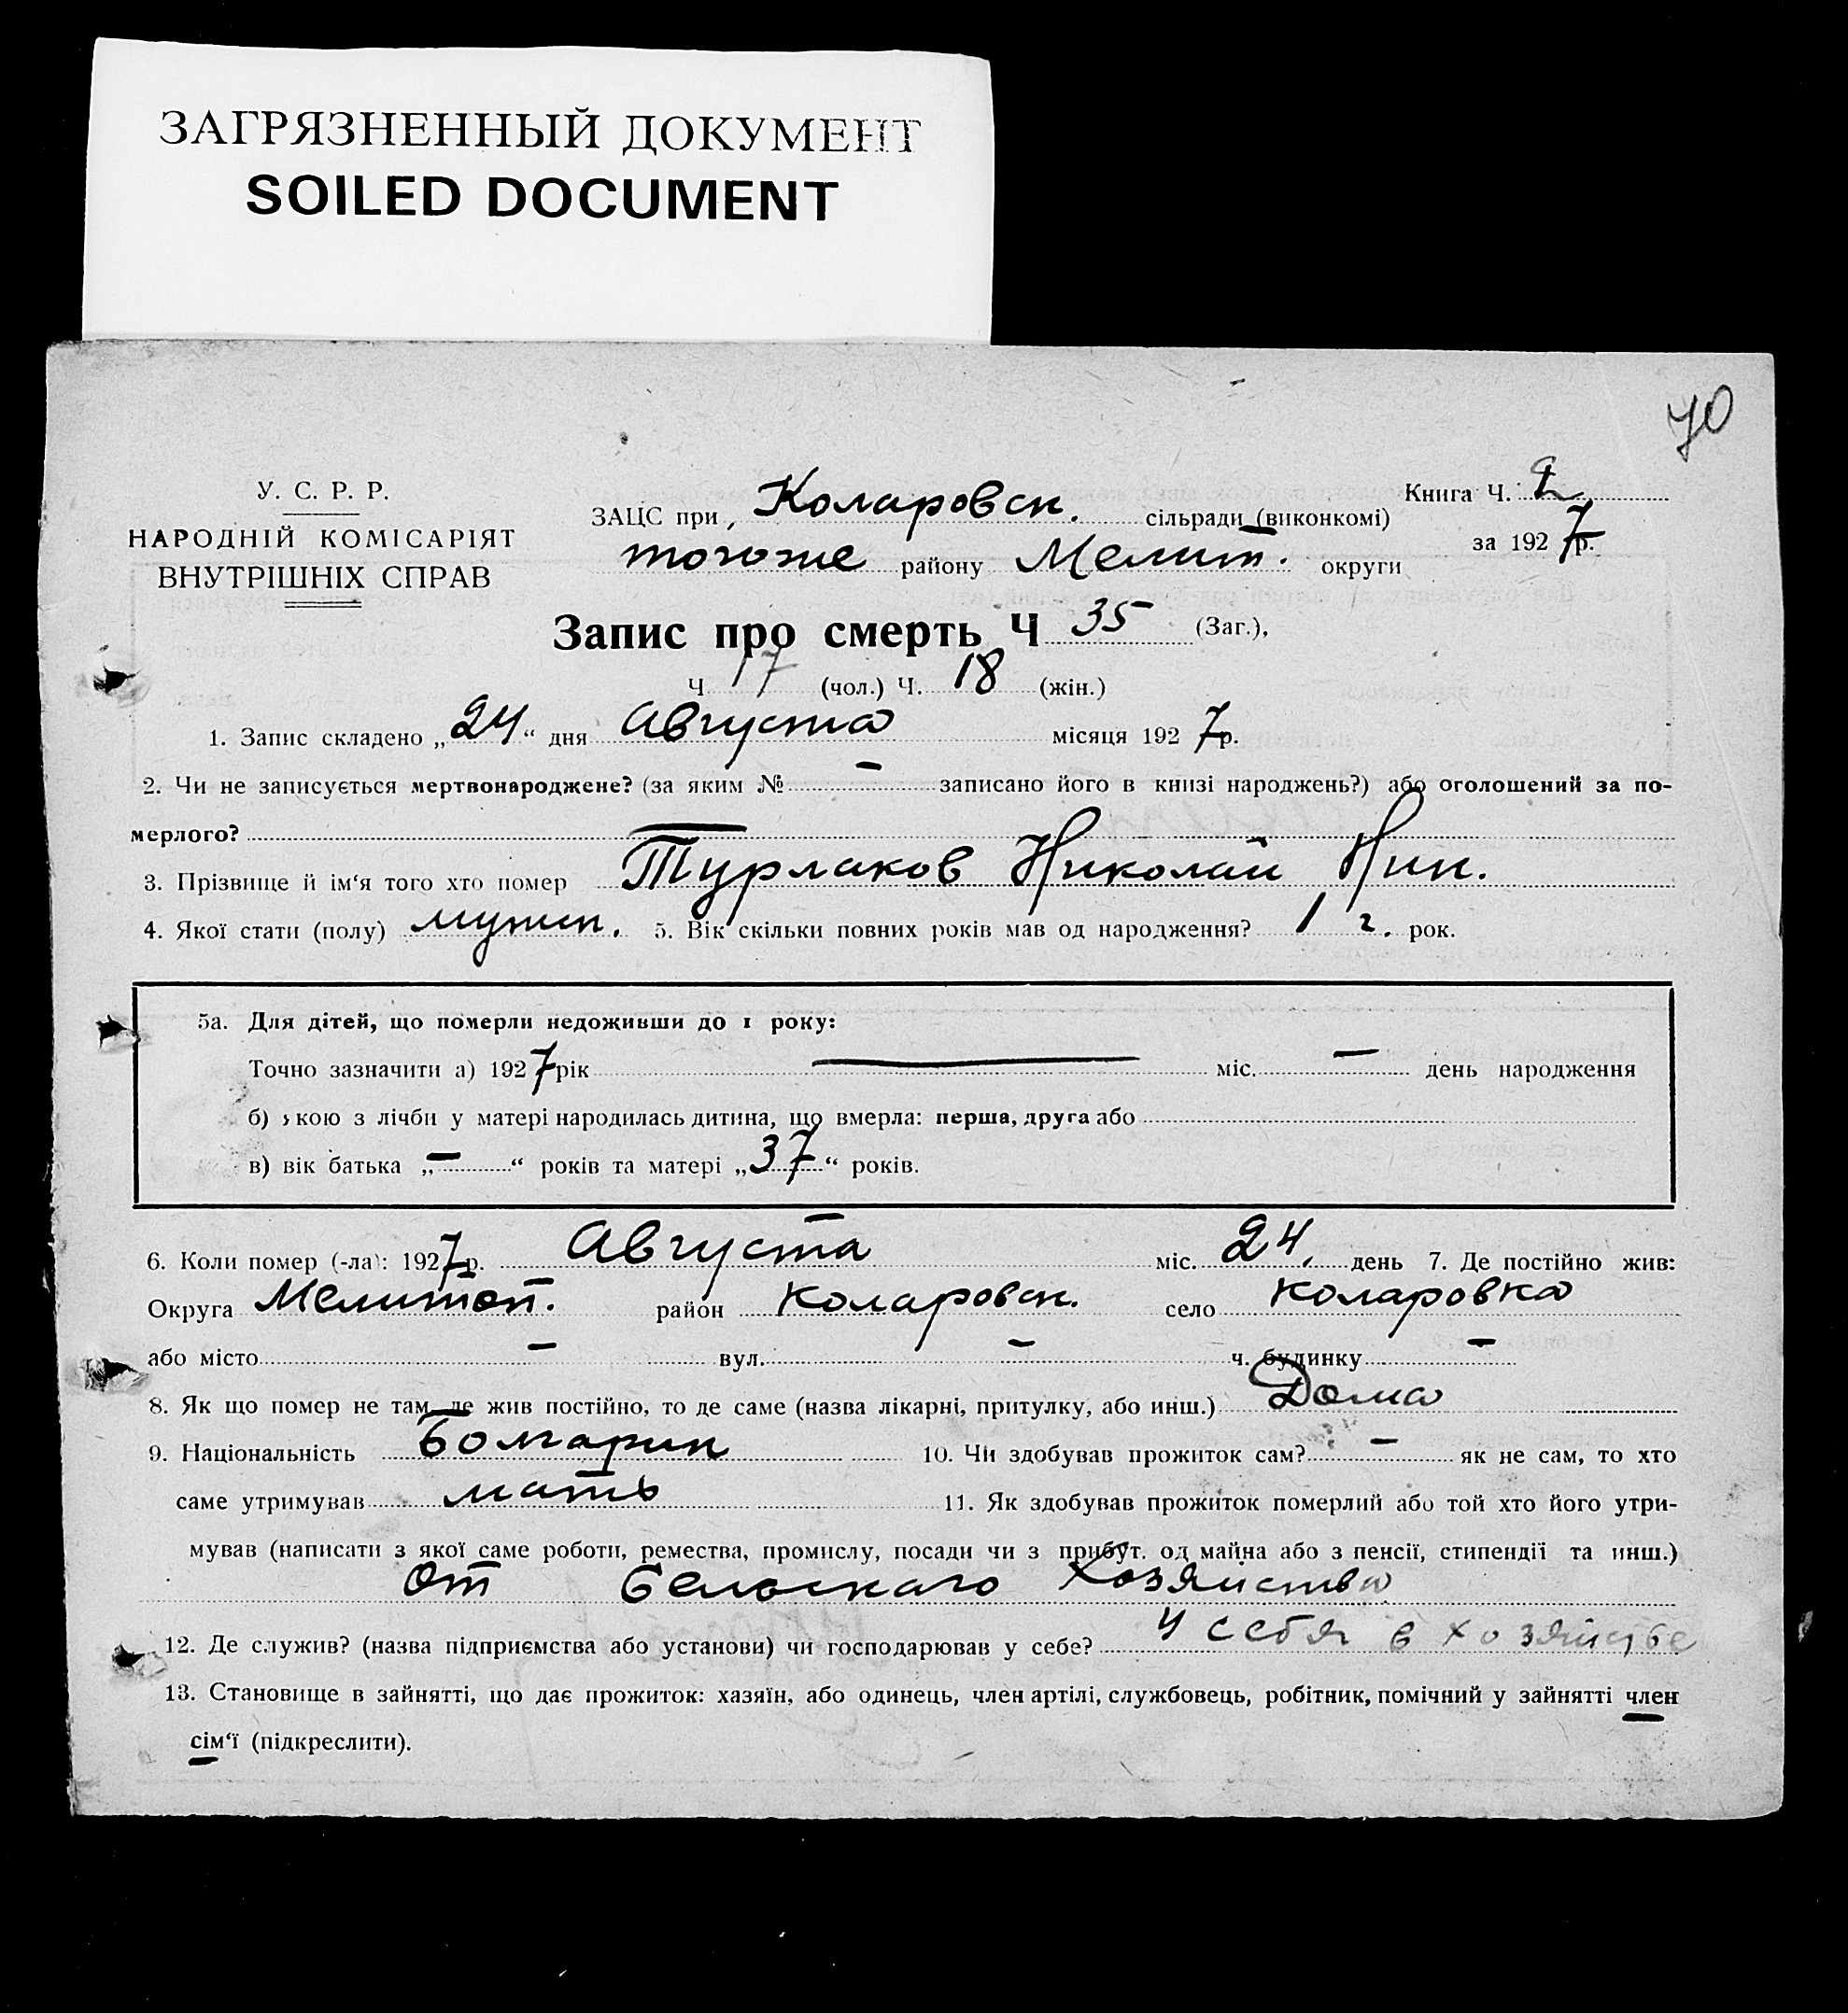 ЗАГРЯЗНЕННЫЙ ДОКУМЕНТ
SOILED DOCUMENT
70
У. С. Р. Р.
НАРОДНІЙ КОМІСАРІЯТ
ВНУТРІШНІХ СПРАВ
ЗАЦС при Коларовск. сільради (виконкомі)
Книга Ч. 2
тогоже району Мелит. округи
за 1927 р.
Запис про смерть Ч 35 (Заг.),
Ч 17 (чол.) Ч. 18 (жін.)
1. Запис складено „24“ дня Августа місяця 1927 р.
2. Чи не записується мертвонароджене? (за яким № — записано його в книзі народжень?) або оголошений за по-
мерлого? —
3. Прізвище й ім‘я того хто помер Турлаков Николай Ник.
4. Якої стати (полу) мужск. 5. Вік скільки повних років мав од народження? 1 г. рок.
5а. Для дітей, що померли недоживши до 1 року:
Точно зазначити а) 1927 рік — міс. — день народження
б) кою з лічби у матері народилась дитина, що вмерла: перша, друга або
в) вік батька „—“ років та матері „37“ років.
6. Коли помер (-ла): 1927 р. Августа міс. 24. день 7. Де постійно жив:
Округа Мелитоп. район Коларовск. село Коларовка
або місто — вул. — ч. будинку —
8. Як що помер не там, де жив постійно, то де саме (назва лікарні, притулку, або инш.) Дома
9. Національність Болгарин 10. Чи здобував прожиток сам? — як не сам, то хто
саме утримував мать 11. Як здобував прожиток померлий або той хто його утри-
мував (написати з якої саме роботи, ремества, промислу, посади чи з прибут. од майна або з пенсії, стипендії та инш.)
От Сельскаго Хозяйства
12. Де служив? (назва підприємства або установи) чи господарював у себе? У себя в хозяйстве
13. Становище в зайнятті, що дає прожиток: хазяїн, або одинець, член артілі, службовець, робітник, помічний у зайнятті член
сім‘ї (підкреслити).